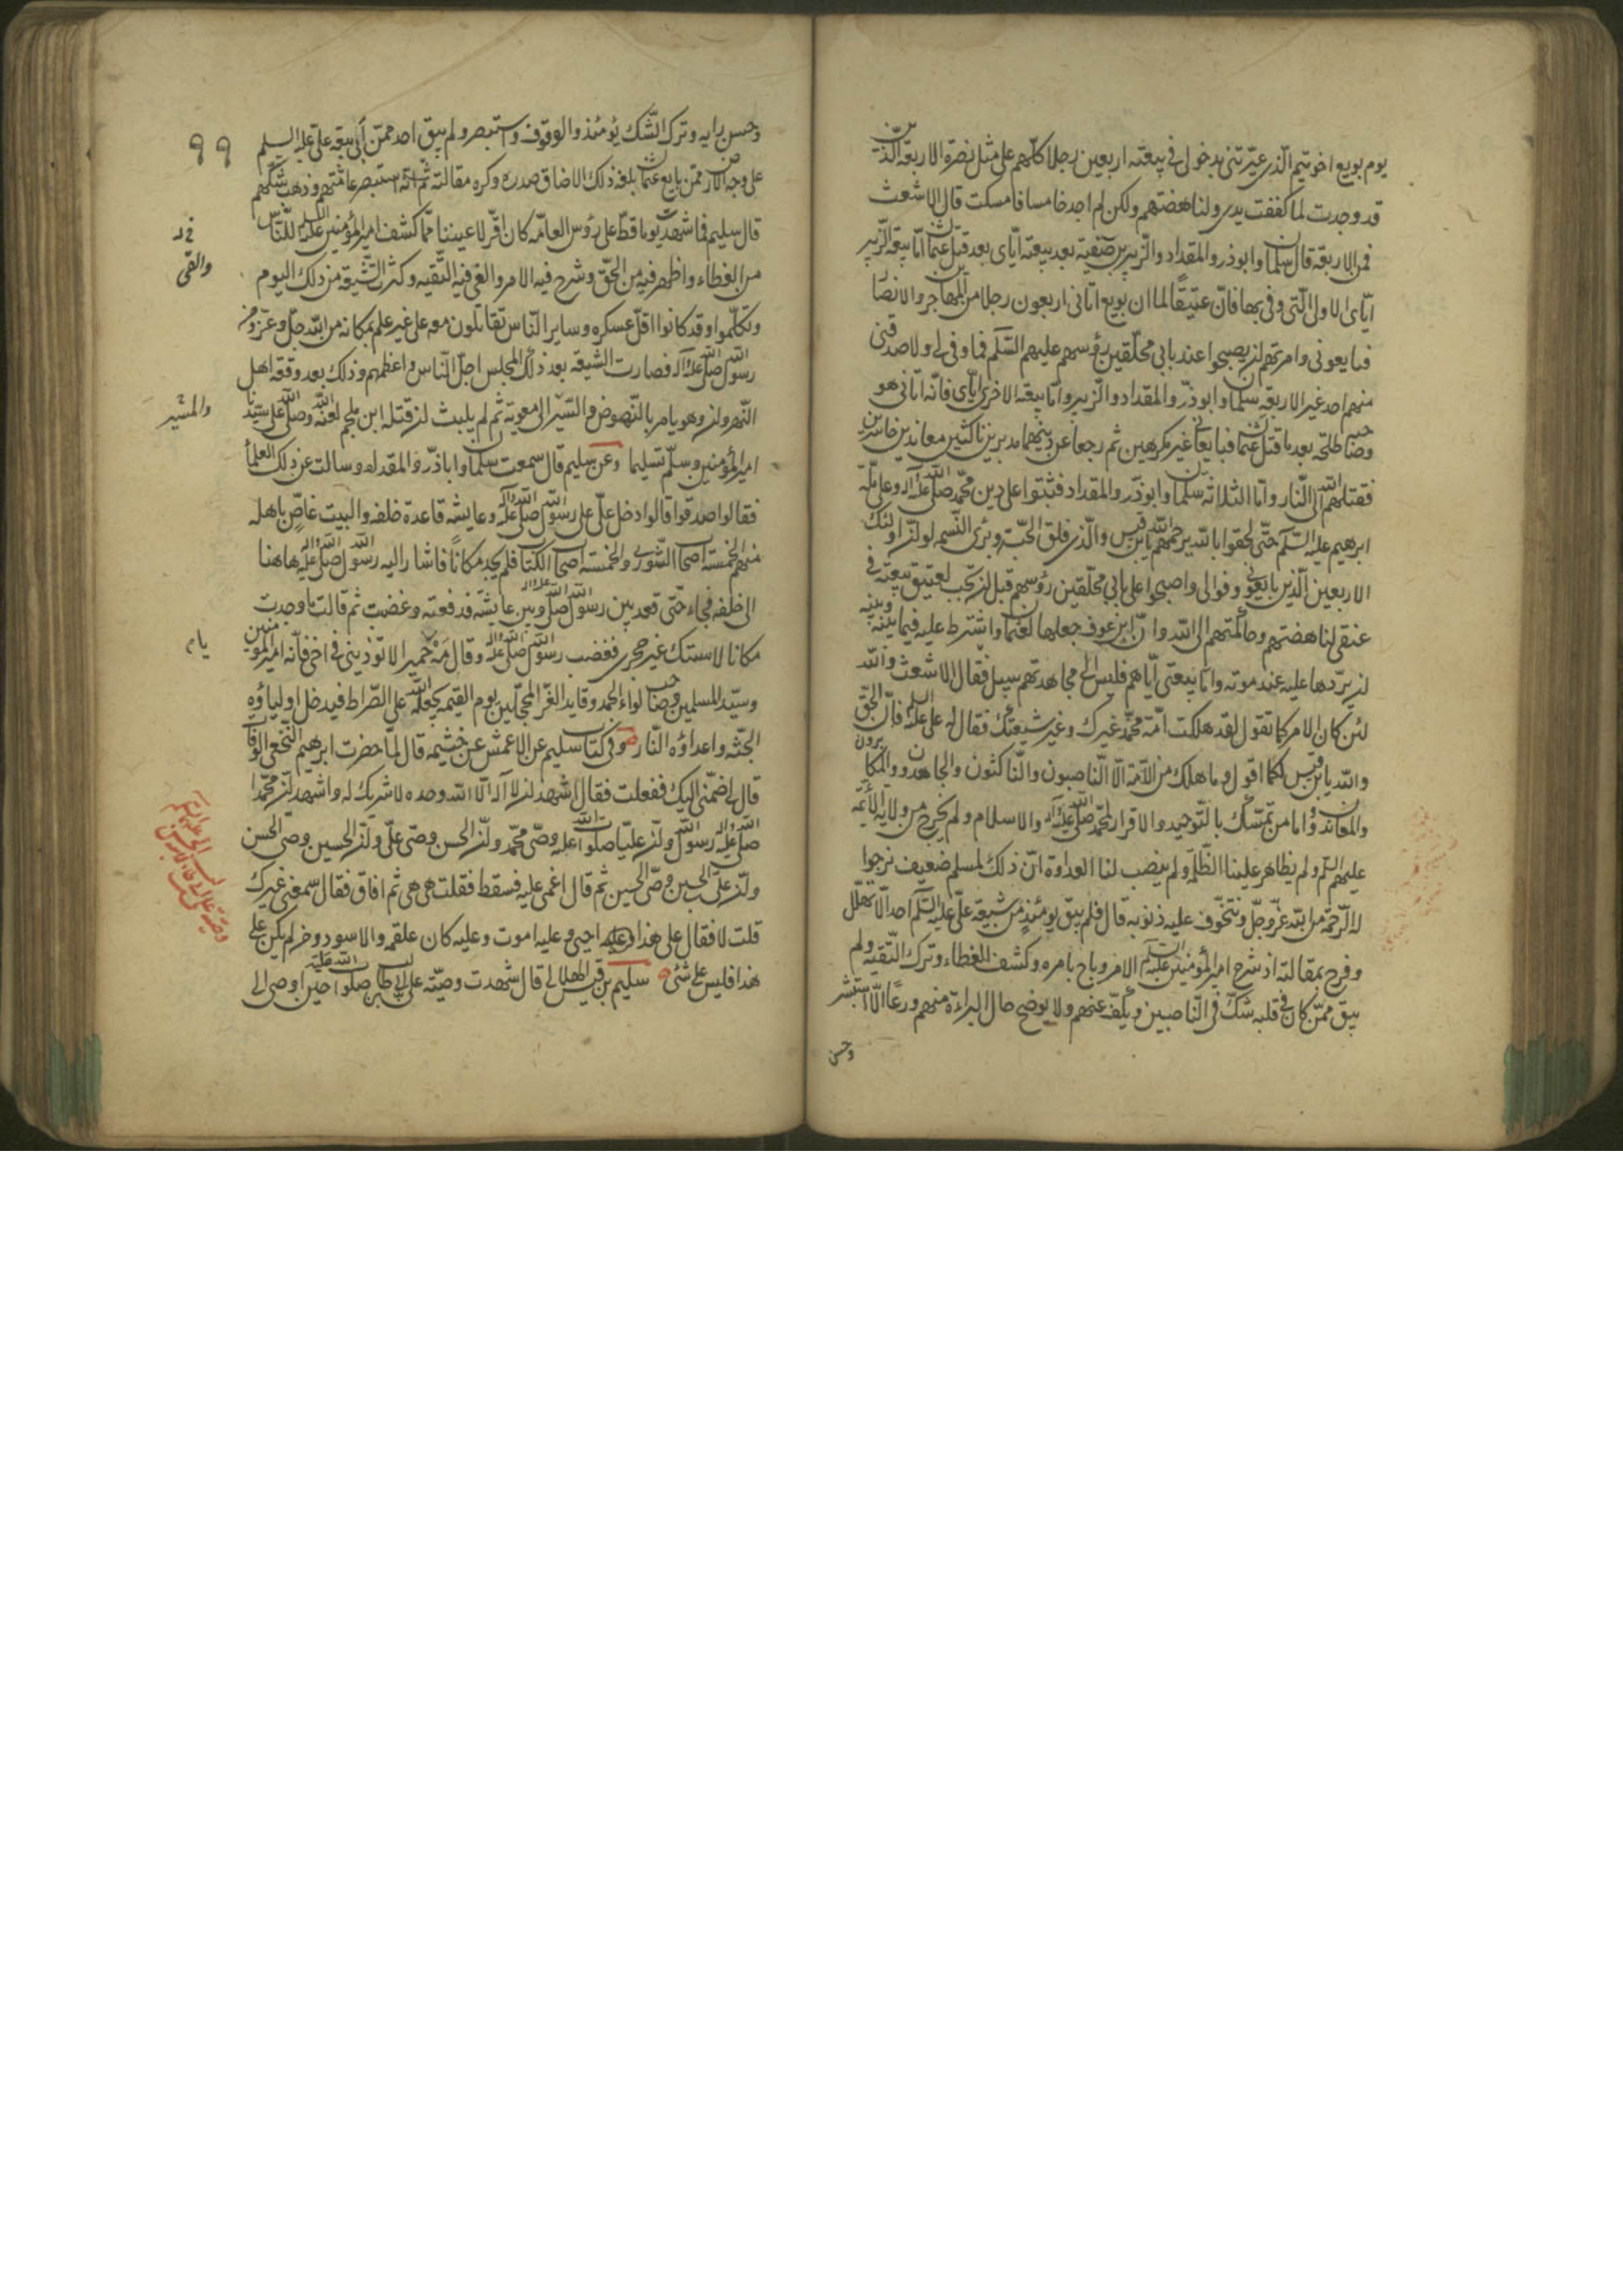 يوم بويع اخو تيم الذي عيّرتني بدخولي في بيعته اربعين رجلا كلهم على مثل نصرة الاربعة الذين
قد وجدت لما كففت يدي ولناهضتهم ولكن لم اجد خامسا فامسكت قال الاشعث
فمن الاربعة قال سلمان وابوذر والمقداد والزبير بن صفية بعد بيعته اياي بعد قتل عثمان اما بيعة الزبير
اياي الاولى التي وفى بها فان عتيقا لما ان بويع اتاني اربعون رجلا من المهاجرين والانصار
فبايعوني وامرتهم ان يصبحوا عند بابي محلقين رؤسهم عليهم السلام فما وفى لي ولا صدقني
منهم احد غير الاربعة سلمان وابوذر والمقداد والزبير واما بيعة الاخرى اياي فانه اتاني هو
وصاحبه طلحة بعد ما قتل عثمان فبايعاني غير مكرهين ثم رجعا عن دينهما مدبرين ناكثين معاندين خاسرين
فقتلهم الله الى النار واما الثلاثة سلمان وابوذر والمقداد فثبتوا على دين محمد صلى الله عليه وآله وعلى ملة
ابرهيم عليه السلم حتى لحقوا بالله يرحمهم الله يابن قيس والذي فلق الحبة وبرئ النسمة لو ان اولئك
الاربعين الذين بايعوني وفوا لي واصبحوا على بابي محلقين رؤسهم قبل ان تجب لعتيق بيعته في
عنقي لناهضتهم وحاكمتهم الى الله وان ابن عوف جعلها لعثمان واشترط عليه فيما بينه وبينه
ان يردها عليه عند موته واما بيعتي اياهم فليس الى مجاهدتهم سبيل فقال الاشعث والله
لئن كان الامر كما تقول لقد هلكت امة محمد غيرك وغير شيعتك فقال له على عليه السلم فان الحق
والله يابن قيس لكما اقول وما هلك من الامة الا الناصبون والناكثون والجاحدون والمكابرون
والمعاندون واما من تمسك بالتوحيد والاقرار لمحمد صلى الله عليه وآله والاسلام ولم يخرج من ولاية الأئمة
عليهم السلم ولم يظاهر علينا الظلمة ولم ينصب لنا العداوة ان ذلك لمسلم ضعيف نرجوا
له الرحمة من الله عز وجل ونتخوف عليه ذنوبه قال فلم يبق يومئذ من شيعة على عليه السلم احد الا تهلل
وفرح بمقالته اذ شرح امير المؤمنين عليه السلام الامر وباح بامره وكشف الغطاء وترك التقية ولم
يبق ممن كان في قلبه شك في الناصبين ويكف عنهم ولا يوضح حال البراءة منهم ورعا الا استبشر
وحسن
٩٩
وحسن رايه وترك الشك يومئذ والوقوف واستبصر ولم يبق احد ممن أبى بيعة على عليه السلم
على وجه الارض ممن بايع عثمان بلغه ذلك الا ضاق صدره وكره مقالته ثم انه استبصر عامتهم وذهب شكهم
قال سليم فما شهدت يوما قط على رؤس العامه كان اقر لاعيننا مما كشف امير المؤمنين عليه السلم للناس
من الغطاء واظهر فيه من الحق وشرح فيه الامر والقى فيه التقيه وكثرت الشيعة من ذلك اليوم
وتكلموا وقد كانوا اقل عسكره وساير الناس تقاتلون معه على غير علم بمكانه من الله جل وعز ومن
رسول الله صلى الله عليه وآله فصارت الشيعة بعد ذلك المجلس اجل الناس واعظمهم وذلك بعد وقعة اهل
النهروان وهو يامر بالنهوض والسير الى معوية ثم لم يلبث ان قتله ابن ملجم لعنه الله وصلى الله على سيدنا
امير المؤمنين وسلم تسليما وعن سليم قال سمعت سلمان واباذر والمقداد وسالت عن ذلك العلماء
فقالوا صدقوا قالوا دخل على على رسول الله صلى الله عليه وآله وعايشه قاعدة خلفه والبيت غاص باهله
منهم الخمسة اصحاب الشورى والخمسة اصحاب الكتاب فلم يجد مكانا فاشار اليه رسول الله صلى الله عليه واله هاهنا
الى خلفه فجاء حتى قعد بين رسول الله صلى الله عليه واله وبين عايشه فدفعته وغضبت ثم قالت ما وجدت
مكانا لاستك غير حجرى فغضب رسول الله صلى الله عليه واله وقال مه حميرا لا توذيني في اخي فانه امير المومنين
وسيد المسلمين وصاحب لواء الحمد وقايد الغر المحجلين يوم القيمه يجعله الله على الصراط فيدخل اولياؤه
الجنه واعداؤه النار وفي كتاب سليم عن الاعمش عن خيثمه قال لما حضرت ابرهيم النخعي الوفاة
قال لي ضمني اليك ففعلت فقال اشهد ان لا اله الا الله وحده لا شريك له واشهد ان محمدا
صلى الله عليه واله رسول الله وان عليا صلوات الله عليه وصى محمد وان الحسن وصى على وان الحسين وصى الحسن
وان على بن الحسين وصى الحسين ثم قال اغمى عليه فسقط فقلت هى هى ثم افاق فقال سمعنى غيرك
قلت لا فقال على هذا احيى وعليه اموت وعليه كان علقمه والاسود ومن لم يكن على
هذا فليس على شئ سليم بن قيس الهلالي قال شهدت وصية على بن ابى طالب صلوات الله عليه حين اوصى الى
والقى
والمشير